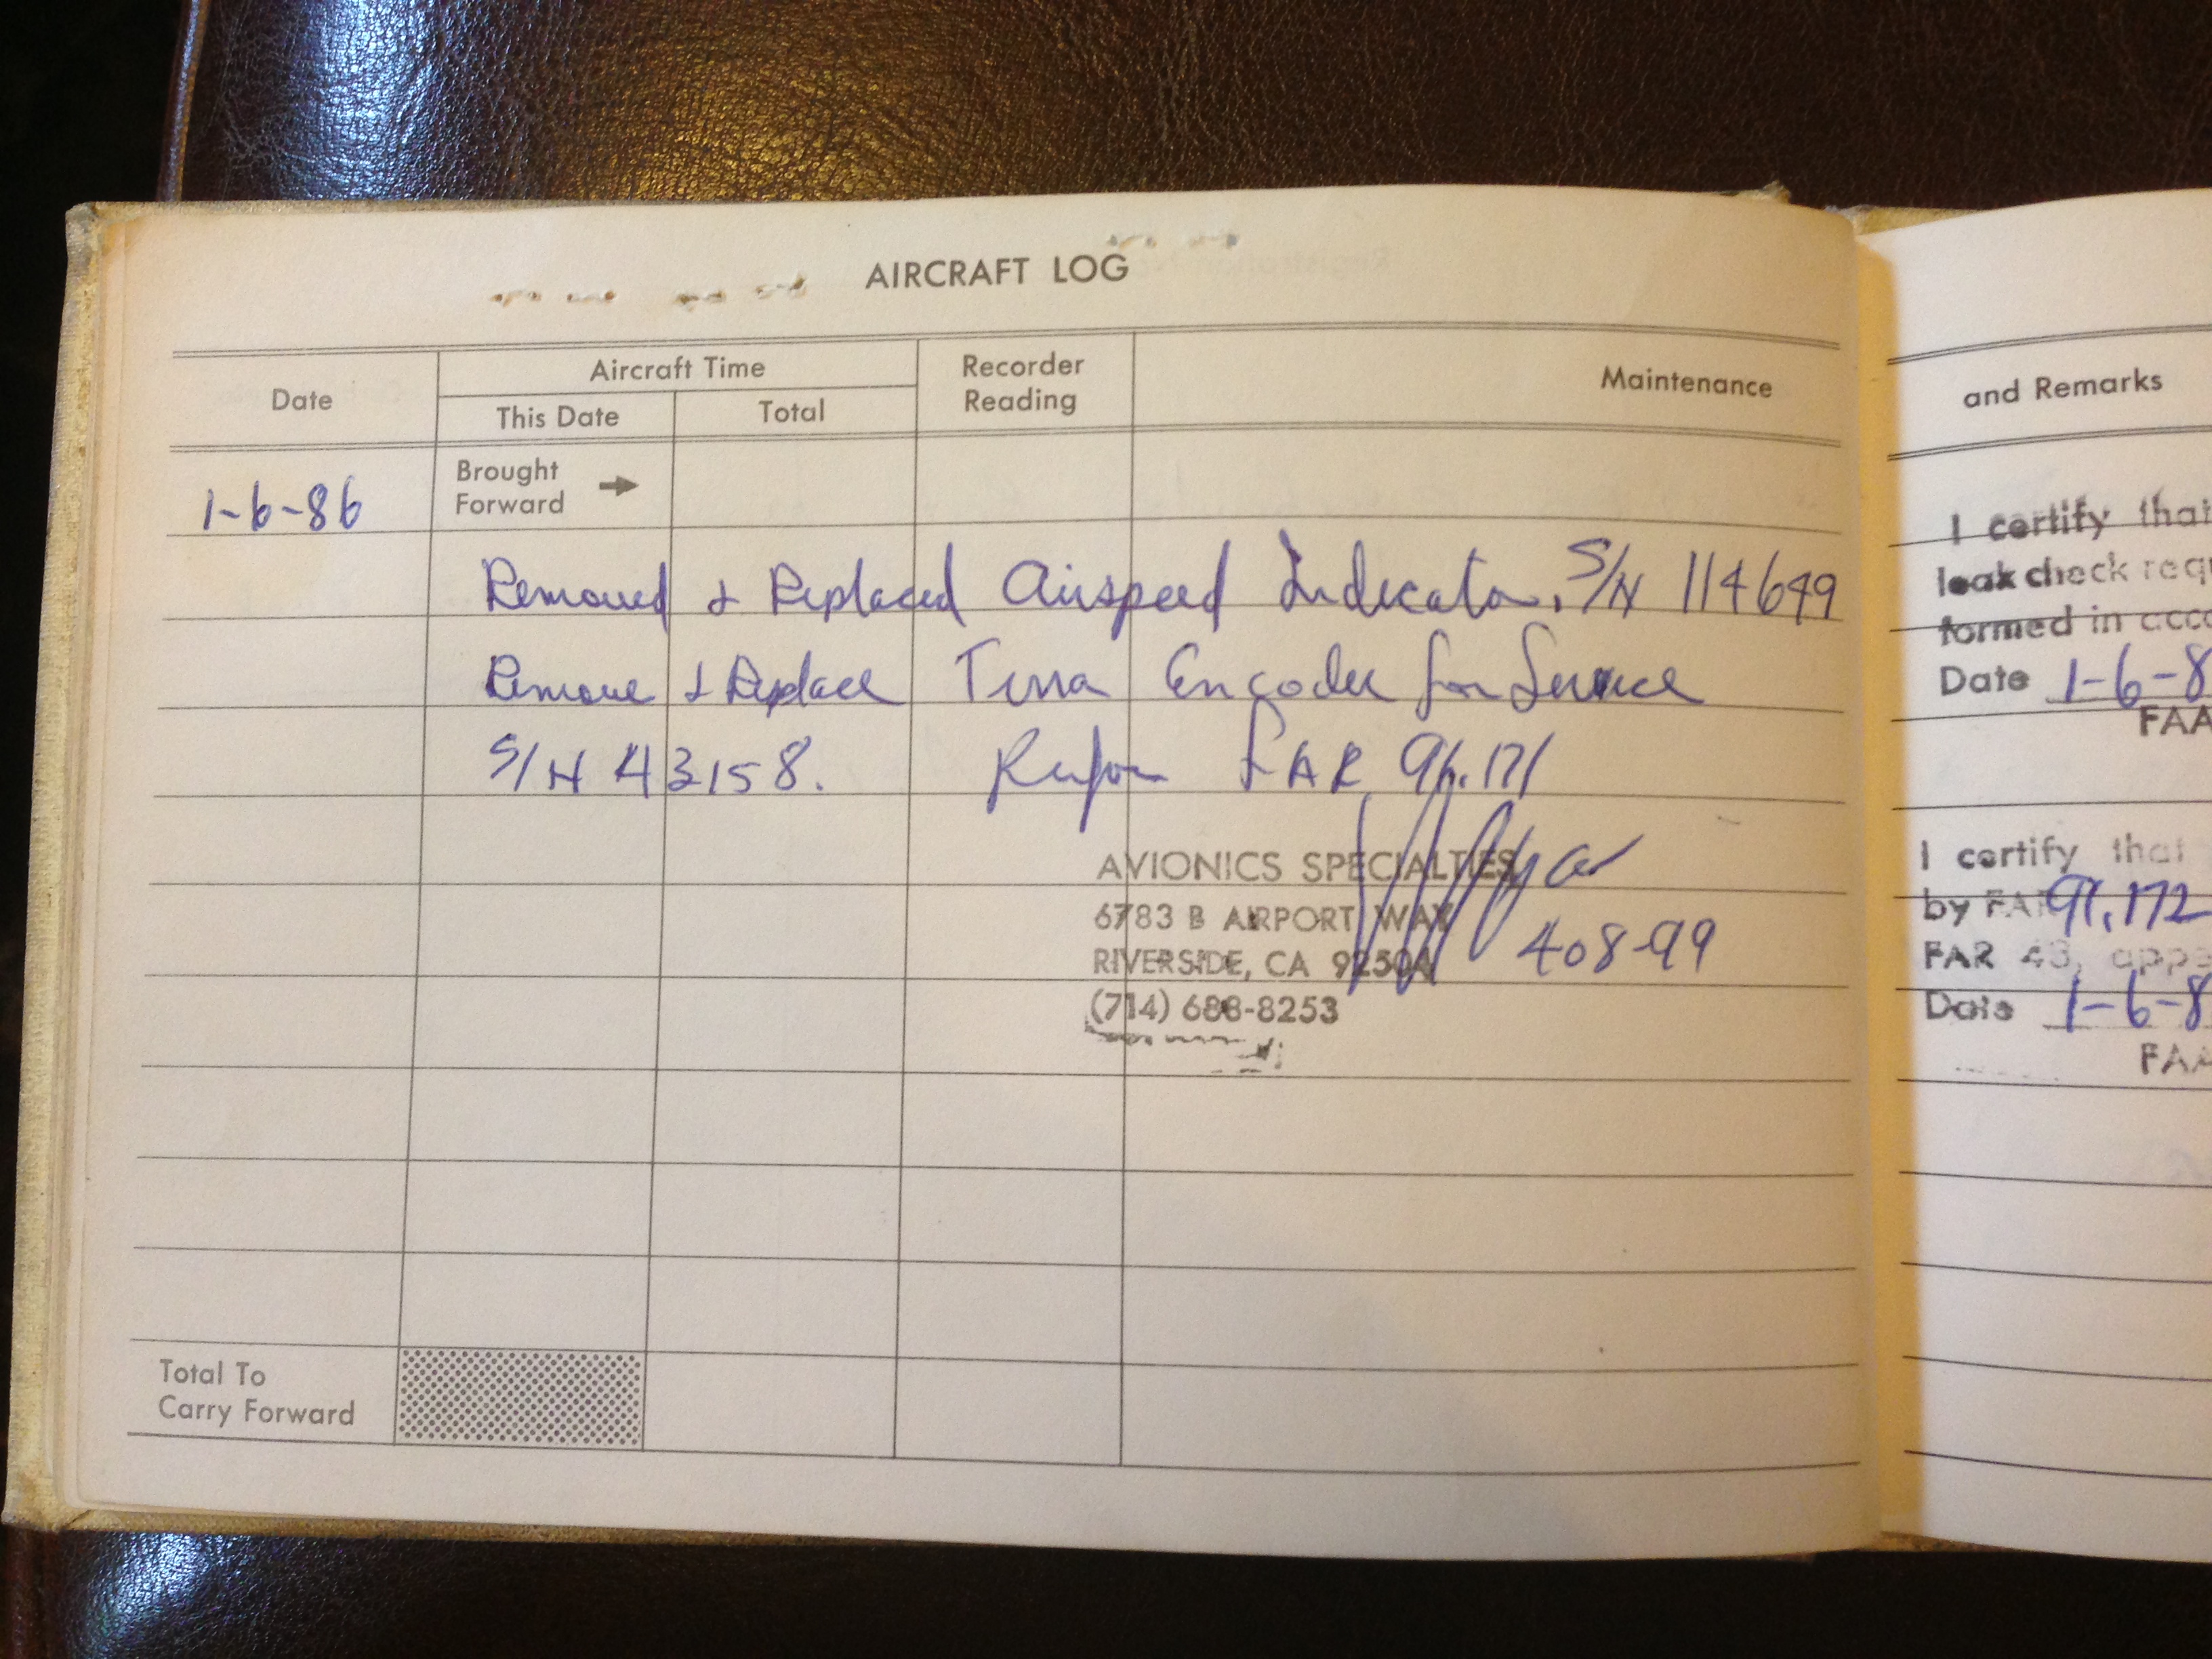 AIRCRAFT LOG
Date
Aircraft Time
This Date
Total
Recorder Reading
Maintenance
1-6-86
Brought
Forward
Removed & Replaced Airspeed Indicator. S/N 114649
Remove & Replace Terra Encoder for Service
S/N 43158. FAR 91.171
AVIONICS SPECIALTIES
6783 B AIRPORT WAY
RIVERSIDE, CA 92504
408-99
(714) 688-8253
Total To
Carry Forward
and Remarks
I certify that
leak check requ
formed in acco
Date 1-6-8
FAA
I certify that
by FAR 91.172
FAR 43, appe
Date 1-6-8
FAA